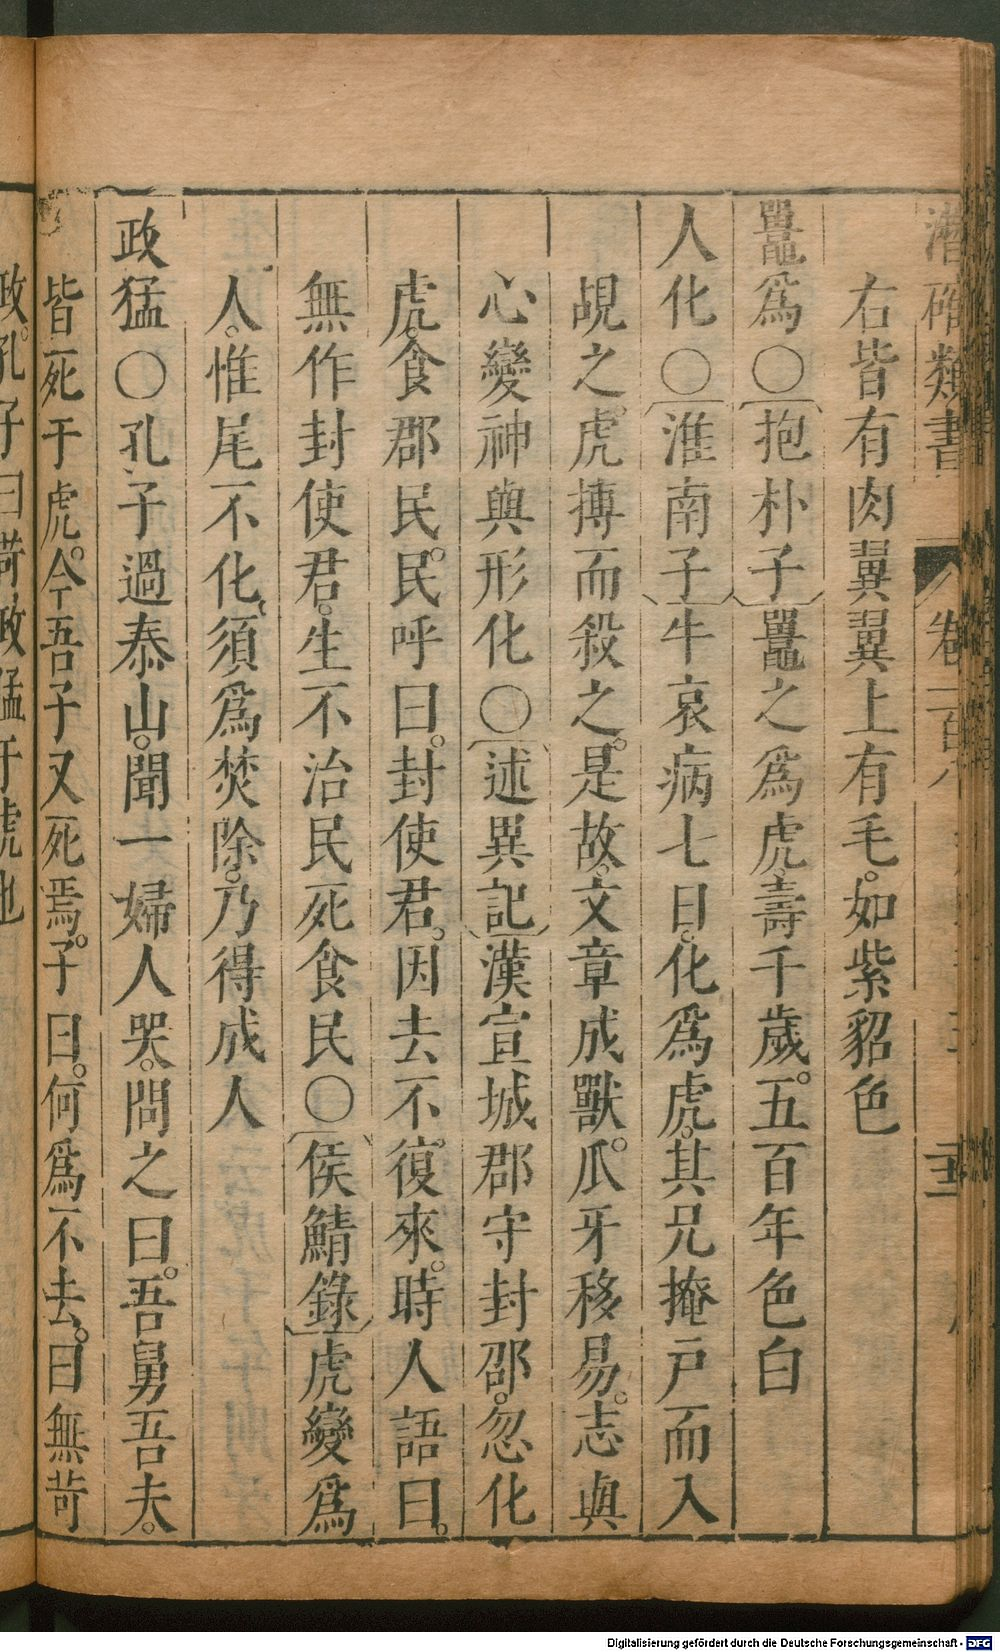 潛確類書 卷一百八
右皆有肉翼翼上有毛。如紫貂色
鼍為○抱朴子鼍之為虎。壽千歲。五百年色白
人化○淮南子牛哀病七日。化爲虎。其兄掩戸而入
覘之。虎搏而殺之。是故。文章成獸。爪牙移易。志與
心變神與形化○述異記漢宣城郡守封邵。忽化
虎。食郡民。民呼曰。封使君。因去不復來。時人語曰。
無作封使君。生不治民死食民○侯鯖錄虎變爲
人。惟尾不化。須爲焚除。乃得成人
政猛○孔子過泰山。聞一婦人哭。問之曰。吾舅吾夫。
皆死于虎。今吾子又死焉。子曰。何爲不去。曰無苛
政。孔子曰苛政猛于虎也
Digitalisierung gefördert durch die Deutsche Forschungsgemeinschaft - DFG